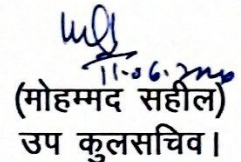 11.06.2020
(मोहम्मद सहील)
उप कुलसचिव।